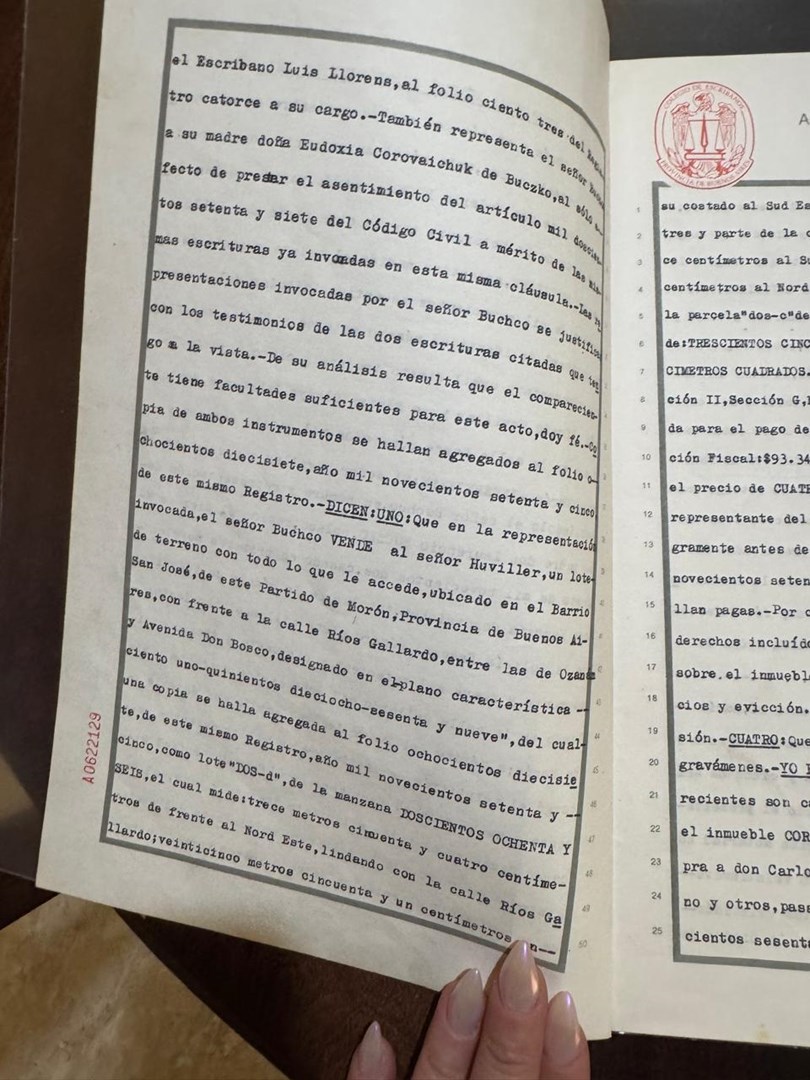 el Escribano Luis Llorens,al folio ciento tres del
tro catorce a su cargo.-También representa el señor
a su madre doña Eudoxia Corovaichuk de Buczko,al sólo
fecto de presar el asentimiento del artículo mil doscien-
tos setenta y siete del Código Civil a mérito de las mis-
mas escrituras ya invocadas en esta misma cláusula.-Las re
presentaciones invocadas por el señor Buchco se justifica
con los testimonios de las dos escrituras citadas que ten
go a la vista.-De su análisis resulta que el comparecien-
te tiene facultades suficientes para este acto,doy fé.-Co
pia de ambos instrumentos se hallan agregados al folio o-
chocientos diecisiete,año mil novecientos setenta y cinco
de este mismo Registro.-DICEN:UNO:Que en la representación
invocada,el señor Buchco VENDE al señor Huviller,un lote-
de terreno con todo lo que le accede,ubicado en el Barrio
San José,de este Partido de Morón,Provincia de Buenos Ai-
res,con frente a la calle Ríos Gallardo,entre las de Ozanam
y Avenida Don Bosco,designado en el-plano característica --
ciento uno-quinientos dieciocho-sesenta y nueve",del cual-
una copia se halla agregada al folio ochocientos diecisie
te,de este mismo Registro,año mil novecientos setenta y --
cinco,como lote"DOS-d",de la manzana DOSCIENTOS OCHENTA Y
SEIS,el cual mide:trece metros cinuenta y cuatro centíme-
tros de frente al Nord Este,lindando con la calle Ríos Ga
llardo;veinticinco metros cincuenta y un centímetros en--
A0622129
43
44
45
46
47
48
49
50
COLEGIO DE ESCRIBANOS
PROVINCIA DE BUENOS AIRES
A
1 su costado al Sud Es
2 tres y parte de la c
3 ce centímetros al Su
4 centímetros al Nord
5 la parcela"dos-c"de
6 de:TRESCIENTOS CINC
7 CIMETROS CUADRADOS.
8 ción II,Sección G,
9 da para el pago de
10 ción Fiscal:$93.34
11 el precio de CUATR
12 representante del
13 gramente antes de
14 novecientos seten
15 llan pagas.-Por
16 derechos incluído
17 sobre.el inmuebl
18 cios y evicción.
19 sión.-CUATRO:Que
20 gravámenes.-YO
21 recientes son ca
22 el inmueble COR
23 pra a don Carlo
24 no y otros,pas
25 cientos sesent